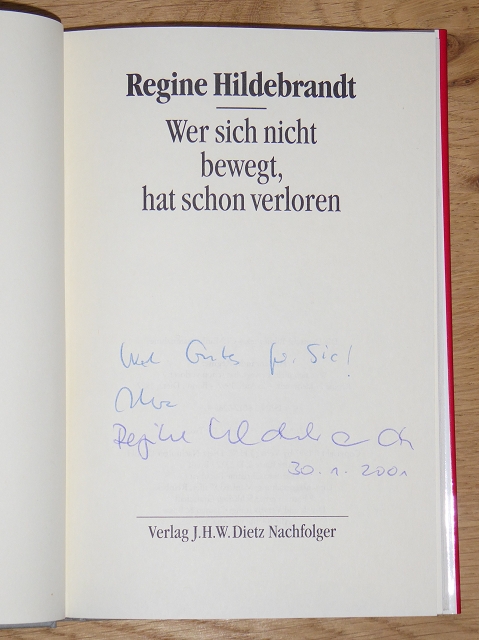 Regine Hildebrandt
Wer sich nicht
bewegt,
hat schon verloren
Viel Gutes für Sie!
Ihre
Regine Hildebrandt
30.1.2001
Verlag J.H.W. Dietz Nachfolger